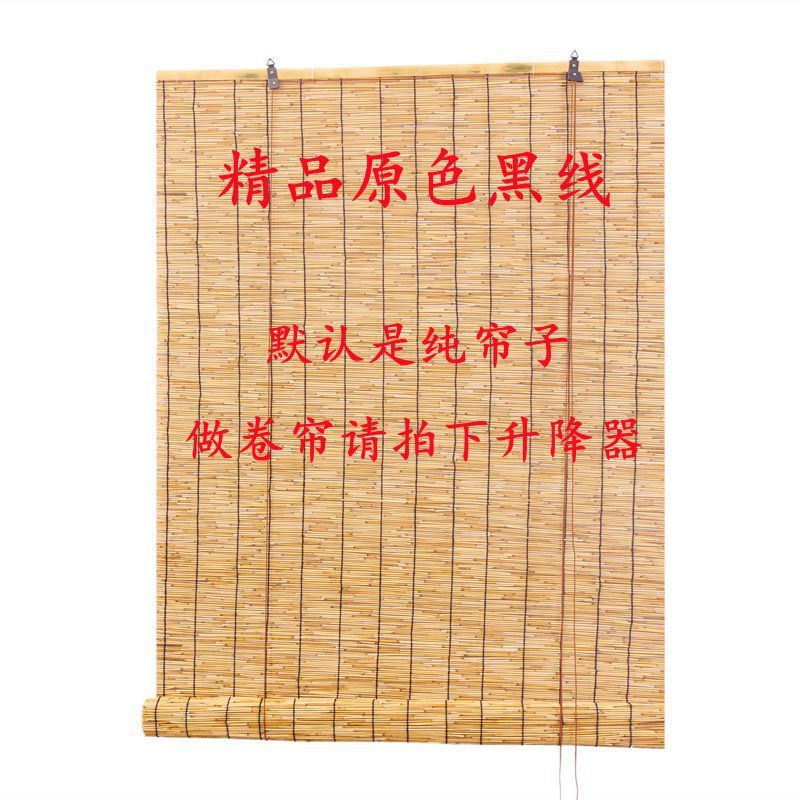 精品原色黑线
默认是纯帘子
做卷帘请拍下升降器